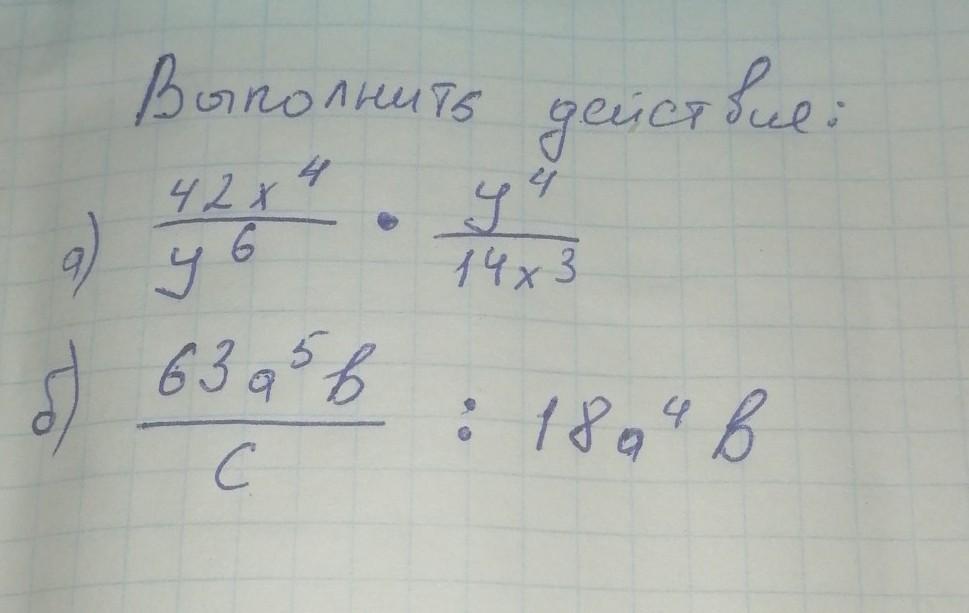 Выполнить действие:
а) \frac{42x^4}{y^6} \cdot \frac{y^4}{14x^3}
б) \frac{63a^5b}{c} : 18a^4b